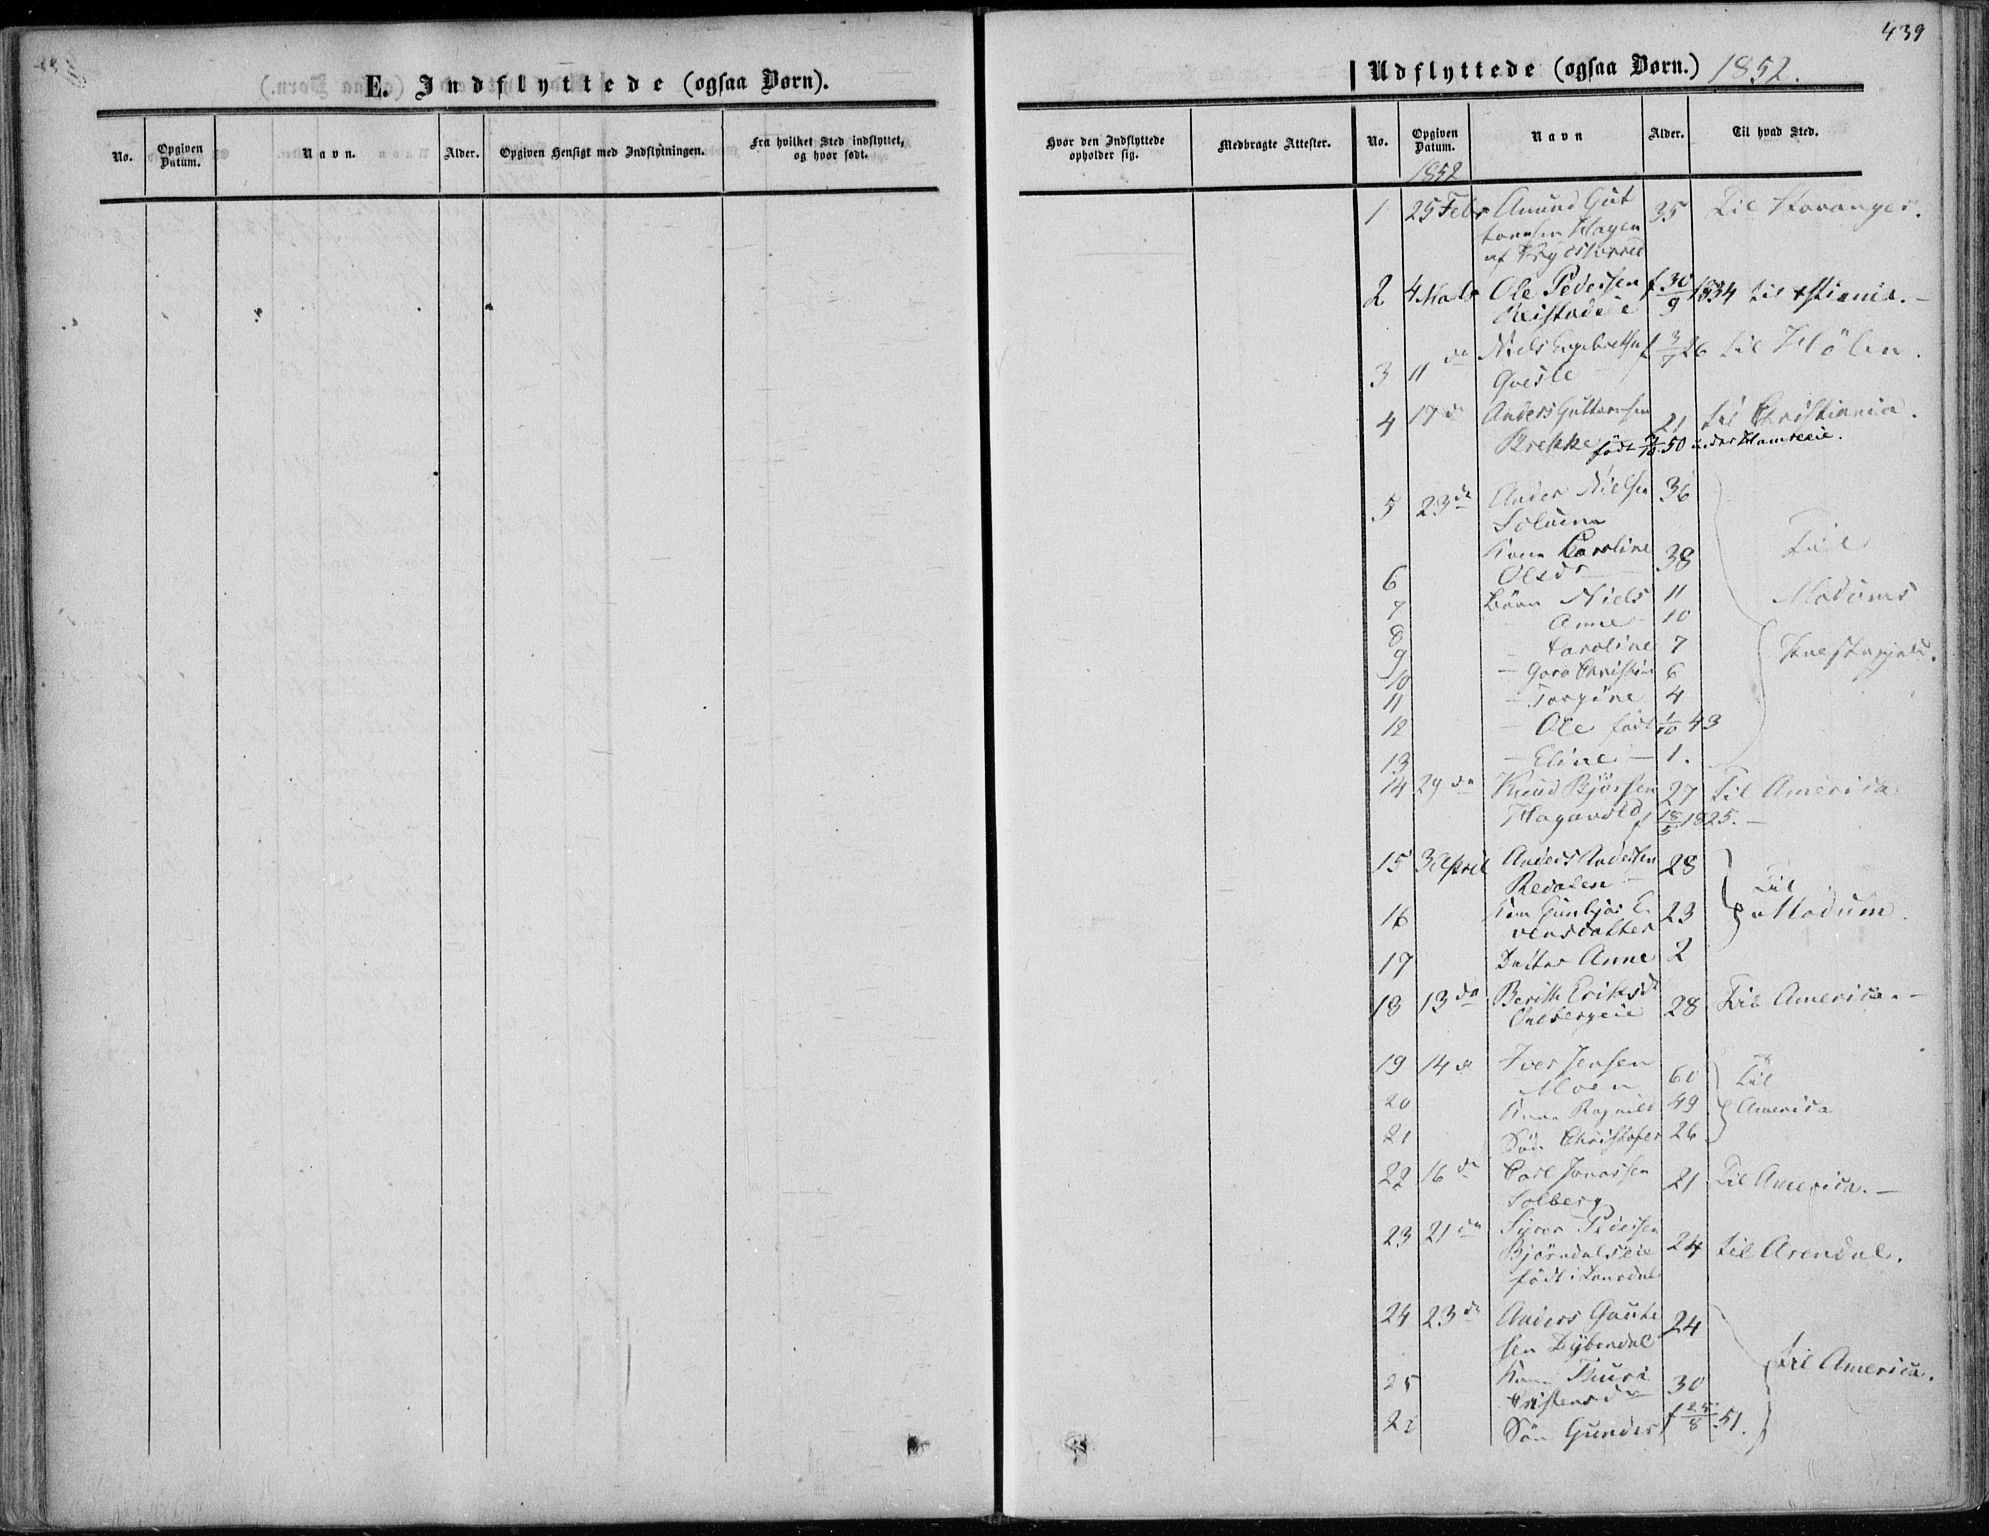 E. Indflyttede (ogsaa Børn).
No.
Opgiven Datum.
Navn.
Alder.
Opgiven Hensigt med Indflytningen.
Fra hvilket Sted indflyttet, og hvor født.
439
Udflyttede (ogsaa Børn.) 1852.
Hvor den Indflyttede opholder sig.
Medbragte Attester.
No.
Opgiven Datum.
Navn
Alder.
Til hvad Sted.
1852
1 25 Febr Amund Gut 35 Til Stavanger.
tormsen Hagen
af
2 4 Marts Ole Pedersen f 30/9 1834 til Xstiania. —
3 11 do Niels Engebrethsen f 3/7 26 til Hølen.
4 17 do Anders Guttormsen 21 til Christiania.
Brekke født 50
5 23 do Anders Nielsen 36
Kone Caroline 38 Til
6 Olsdr
7 Børn Niels 11 Modums
8 Anne 10
9 Caroline 7 Præstegjeld.
10 — Goro Christine 6
11 — Torgine 4
12 — Ole født 1/10 43
13 — Eline — 1.
14 29 do Knud Bjørnsen 27 Til America
f 18/5 1825. —
15 3 April Anders Andersen 28
Redalen Til
16 Kone Gunbjør E 23 Modum.
vensdatter
17 Datter Anne 2
18 13 do Berith Eriksdr 28 Til America. —
19 14 d Iver Jensen
Moen 60 Til
20 Kone Ragnild 49 America
21 Søn Christofer 26
22 16 do Carl Jonassen 21 Til America. —
Solberg
23 21 do Syver Pedersen
Bjørndalseie 24 til Arendal.
født i
24 23 do Anders Gaute 24
sen Dybendal
25 Kone Thuri 30 til America.
Kristensdr
26 Søn Gunder f 25/8 51.